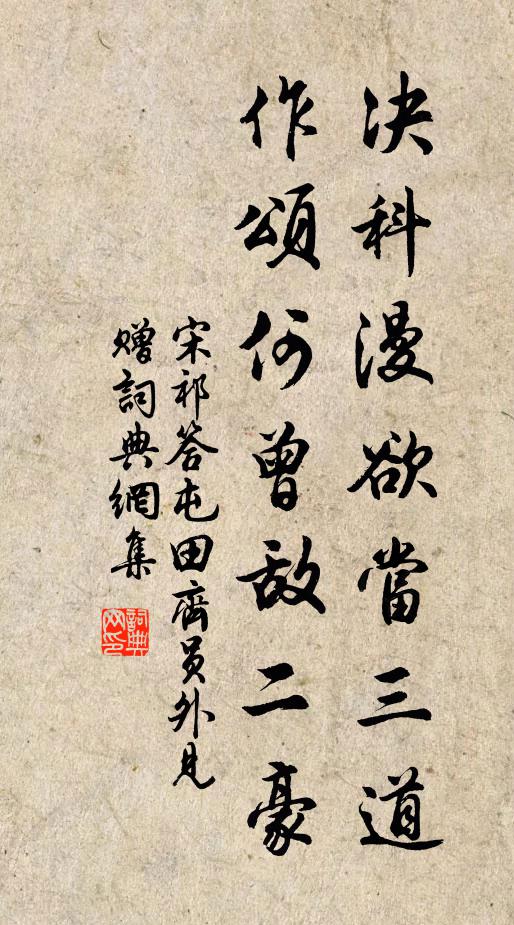 决科漫欲當三道
作頌何曾敌二豪
宋祁答屯田齊员外見
赠詞典網集
詞典
网印